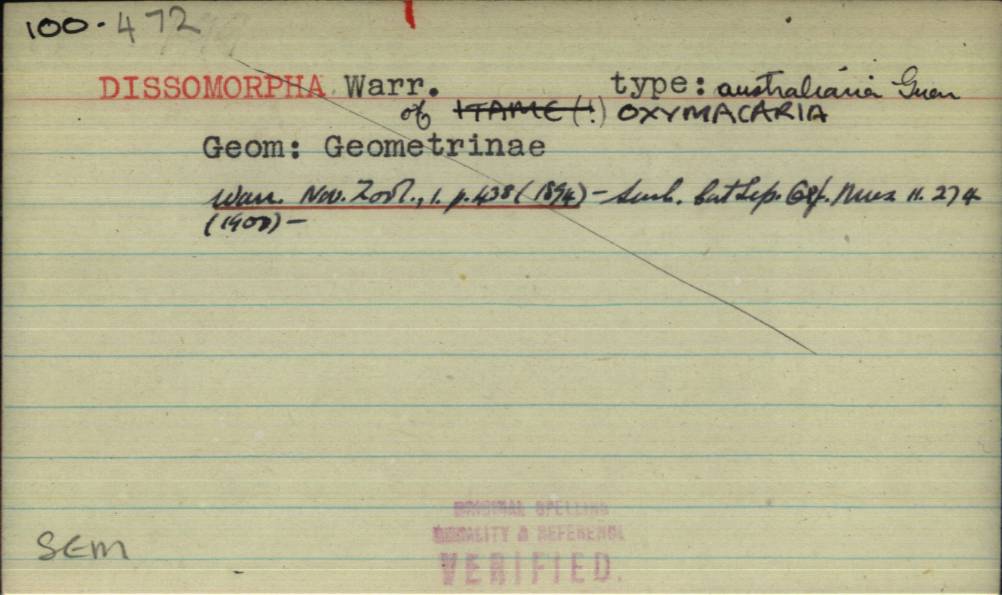 100.472
DISSOMORPHA Warr. type: australiaria Guen
of ITAME (!) OXYMACARIA
Geom: Geometrinae
Warr. Nov. Zool., 1. p. 438 (1894) — Swinh. Cat Lep. Het. Mus II. 274
(1900) —
ORIGINAL SPELLING
& REFERENCE
VERIFIED.
SEM